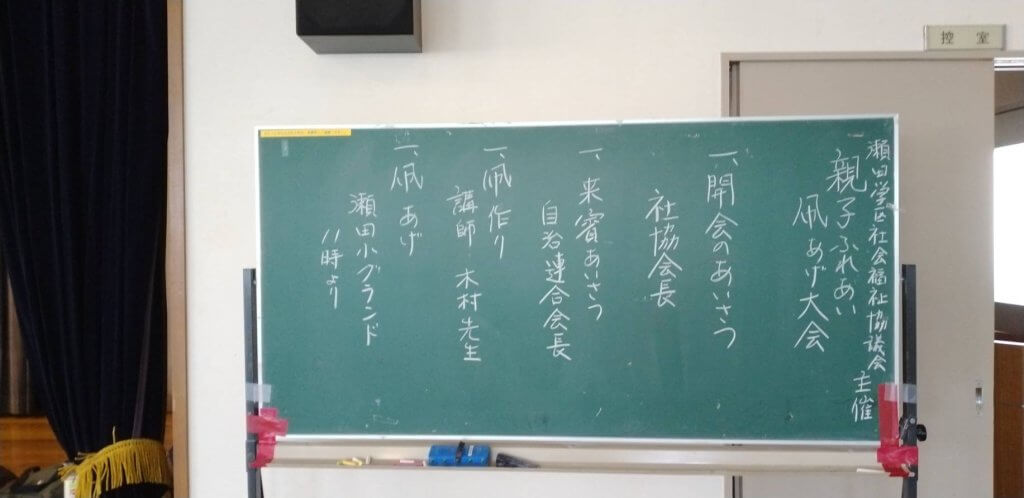 控室
瀬田学区社会福祉協議会 主催
親子ふれあい
凧あげ大会
一、開会のあいさつ
社協会長
一、来賓あいさつ
自治連合会長
一、凧作り
講師 木村先生
一、凧あげ
瀬田小グランド
11時より